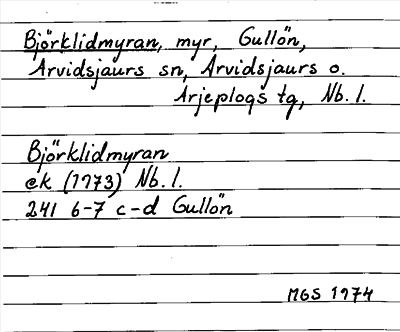 Björklidmyran, myr, Gullön,
Arvidsjaurs sn, Arvidsjaurs o.
Arjeplogs tg, Nb. l.
Björklidmyran
ek (1973) Nb. l.
241 6-7 c-d Gullön
MGS 1974